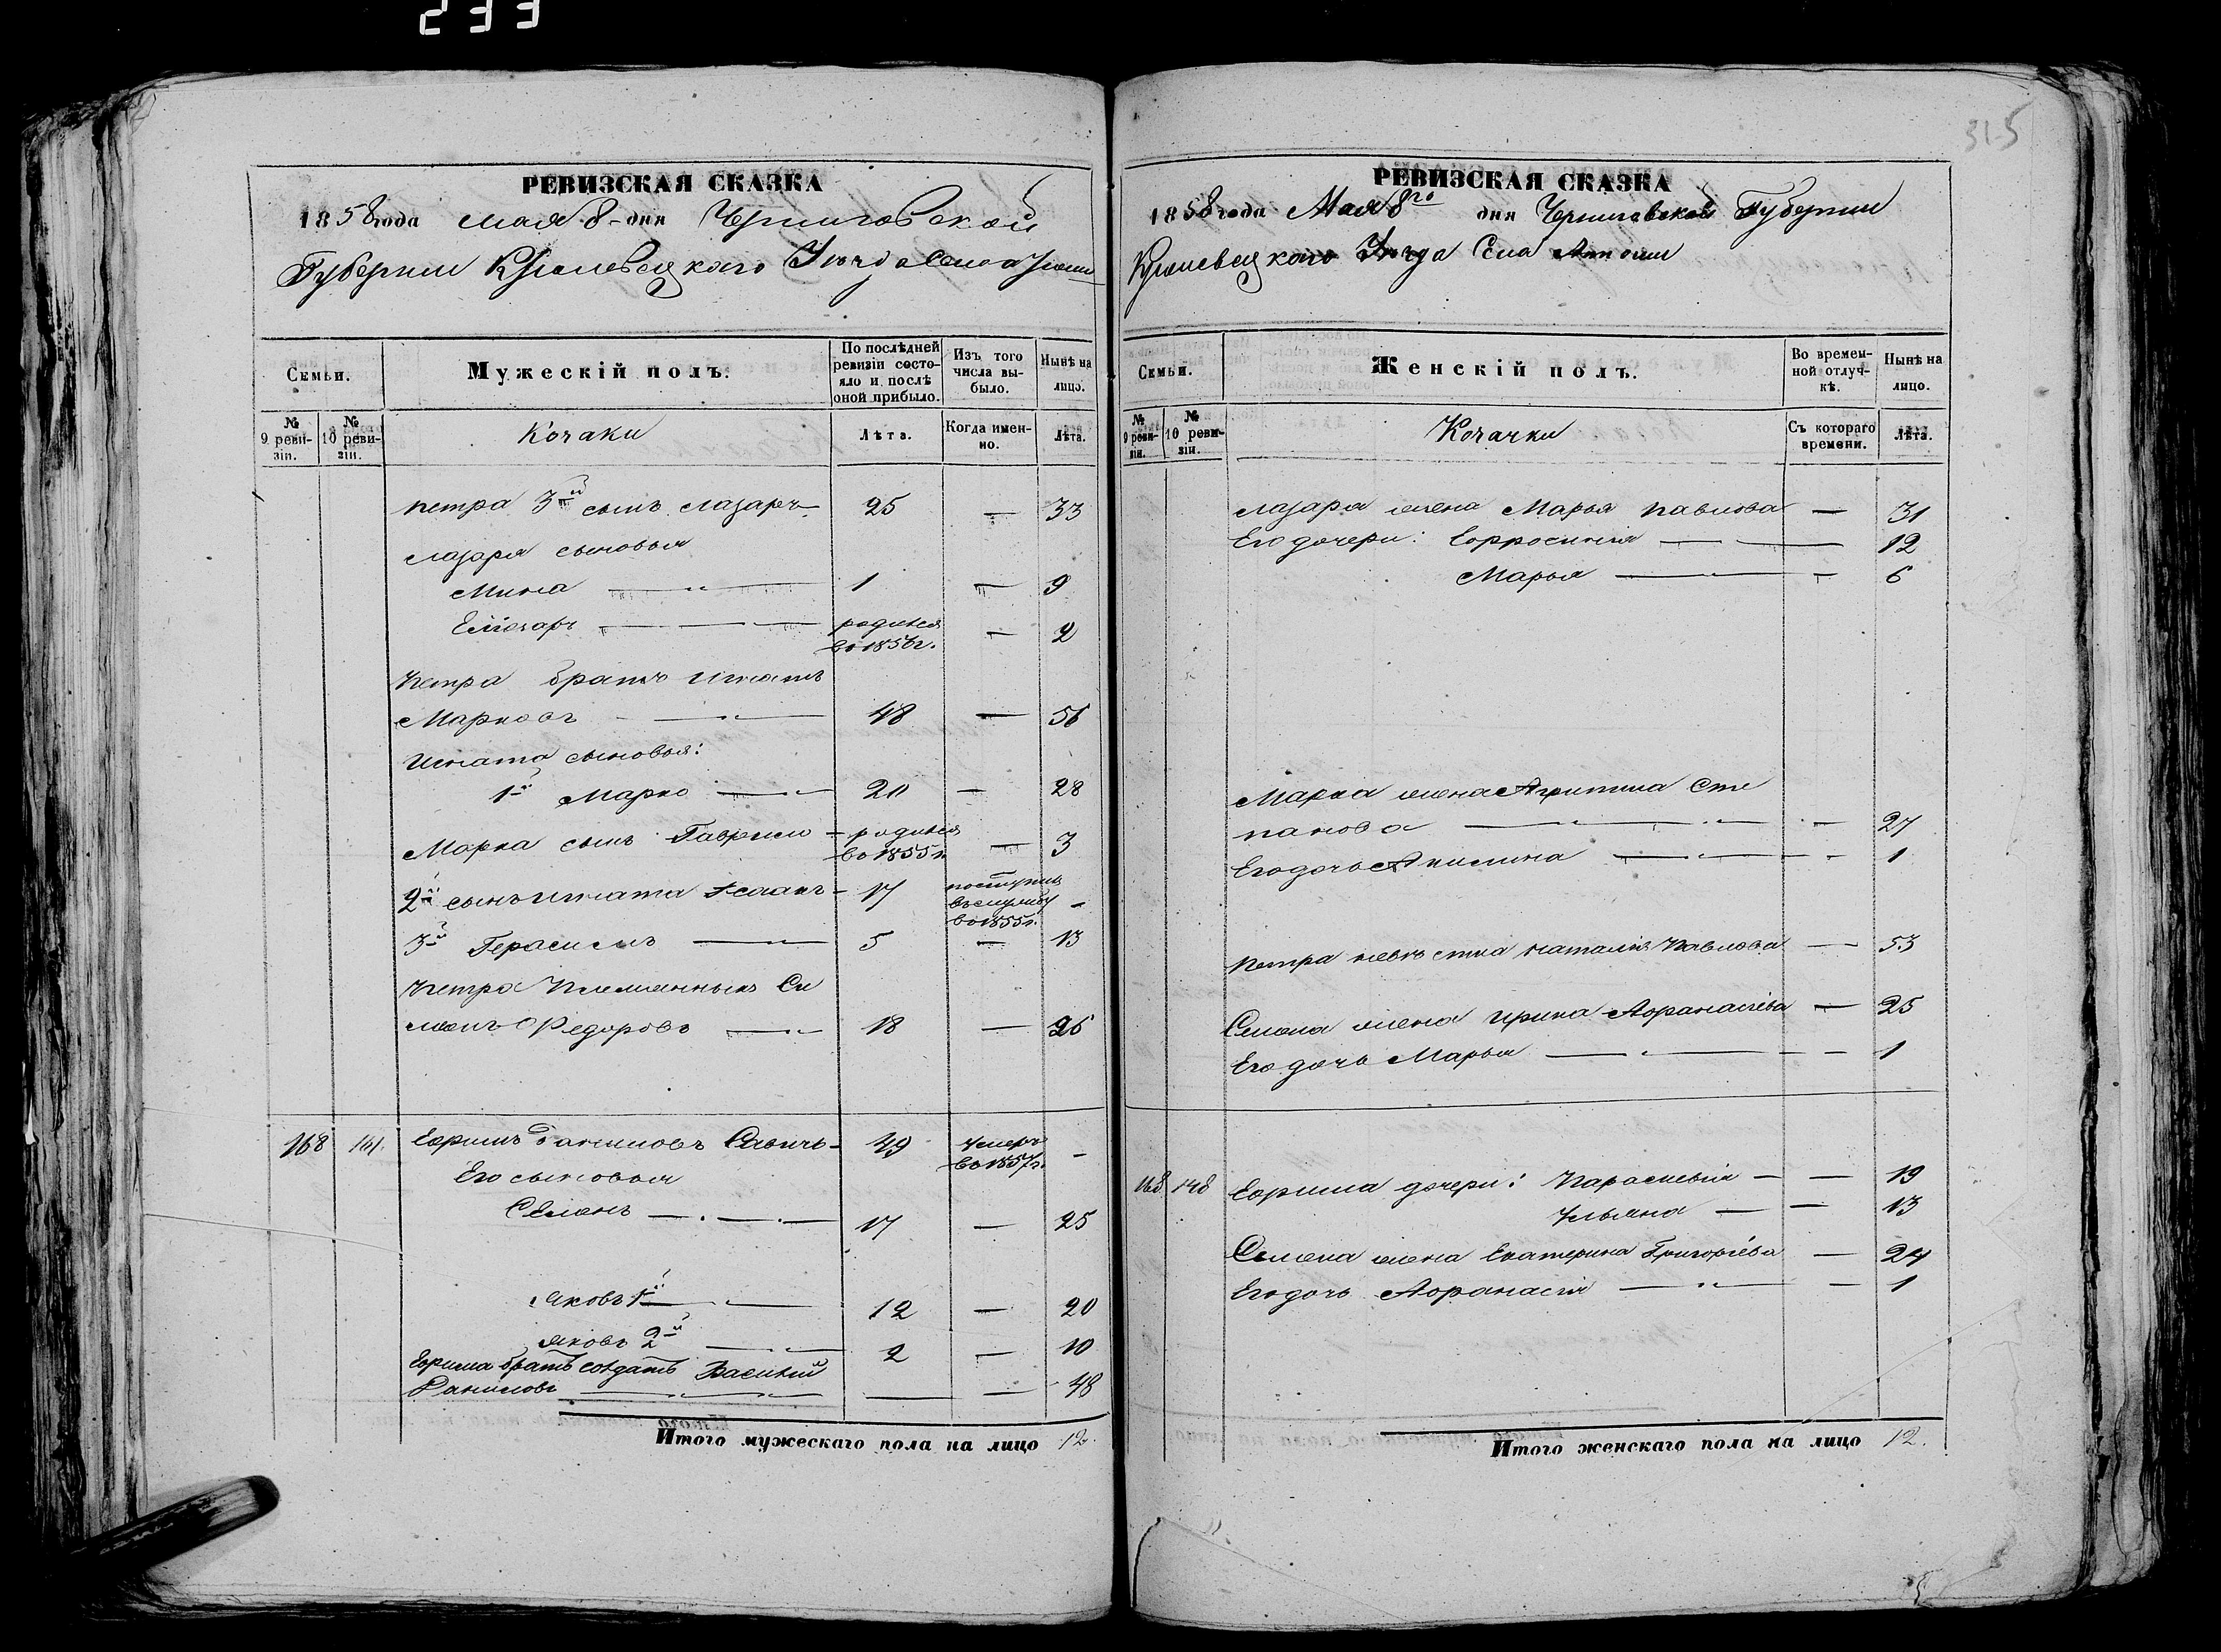 233
РЕВИЗСКАЯ СКАЗКА
1858 года мая 8 дня Черниговской
Губерніи Кролевецкаго Уезда Села
Семьи.
Мужескій полъ.
По послѣдней ревизіи состояло и послѣ оной прибыло.
Изъ того числа выбыло.
Нынѣ на лицо.
№ 9 ревизіи.
№ 10 ревизіи.
Козаки
Лѣта.
Когда именно.
Лѣта.
Петра 3й сынъ Лазарь 25 — 33
Лазаря сыновья
Мина 1 — 9
Еліозаръ родился во 1856 г. — 2
Петра братъ Игнатъ
Марковъ 48 — 56
Игната сыновья:
1й Марко 20 — 28
Марка сынъ Гаврило родился во 1855 г. — 3
2й сынъ Игната Исаакъ 17 поступилъ въ службу во 1855 г. —
3й Герасимъ 5 — 13
Петра Племянникъ Се
менъ Федоровъ 18 — 26
168 141. Ефимъ Даниловъ Савичъ 49 умеръ во 1857 г. —
Его сыновья
Семенъ 17 — 25
Яковъ 1й 12 — 20
Яковъ 2й 2 — 10
Ефима братъ солдатъ Василій
Даниловъ — — 48
Итого мужескаго пола на лицо 12.
315
РЕВИЗСКАЯ СКАЗКА
1858 года Мая 8го дня Черниговской Губерніи
Кролевецкаго Уезда Села
Семьи.
Женскій полъ.
Во временной отлучкѣ.
Нынѣ на лицо.
№ 9 ревизіи.
№ 10 ревизіи.
Козачки
Съ котораго времени.
Лѣта.
Лазаря жена Марья Павлова — 31
Его дочери: Ефросинія — 12
Марья — 6
Марка жена Сте
панова — 27
Его дочь Акилина — 1
Петра невѣстка Наталія Павлова — 53
Семена жена Ирина Афанасіева — 25
Его дочь Марья — 1
168 148 Ефима дочери: Параскевія — 19
Ульяна — 13
Семена жена Екатерина Григоріева — 24
Его дочь Афанасія — 1
Итого женскаго пола на лицо 12.